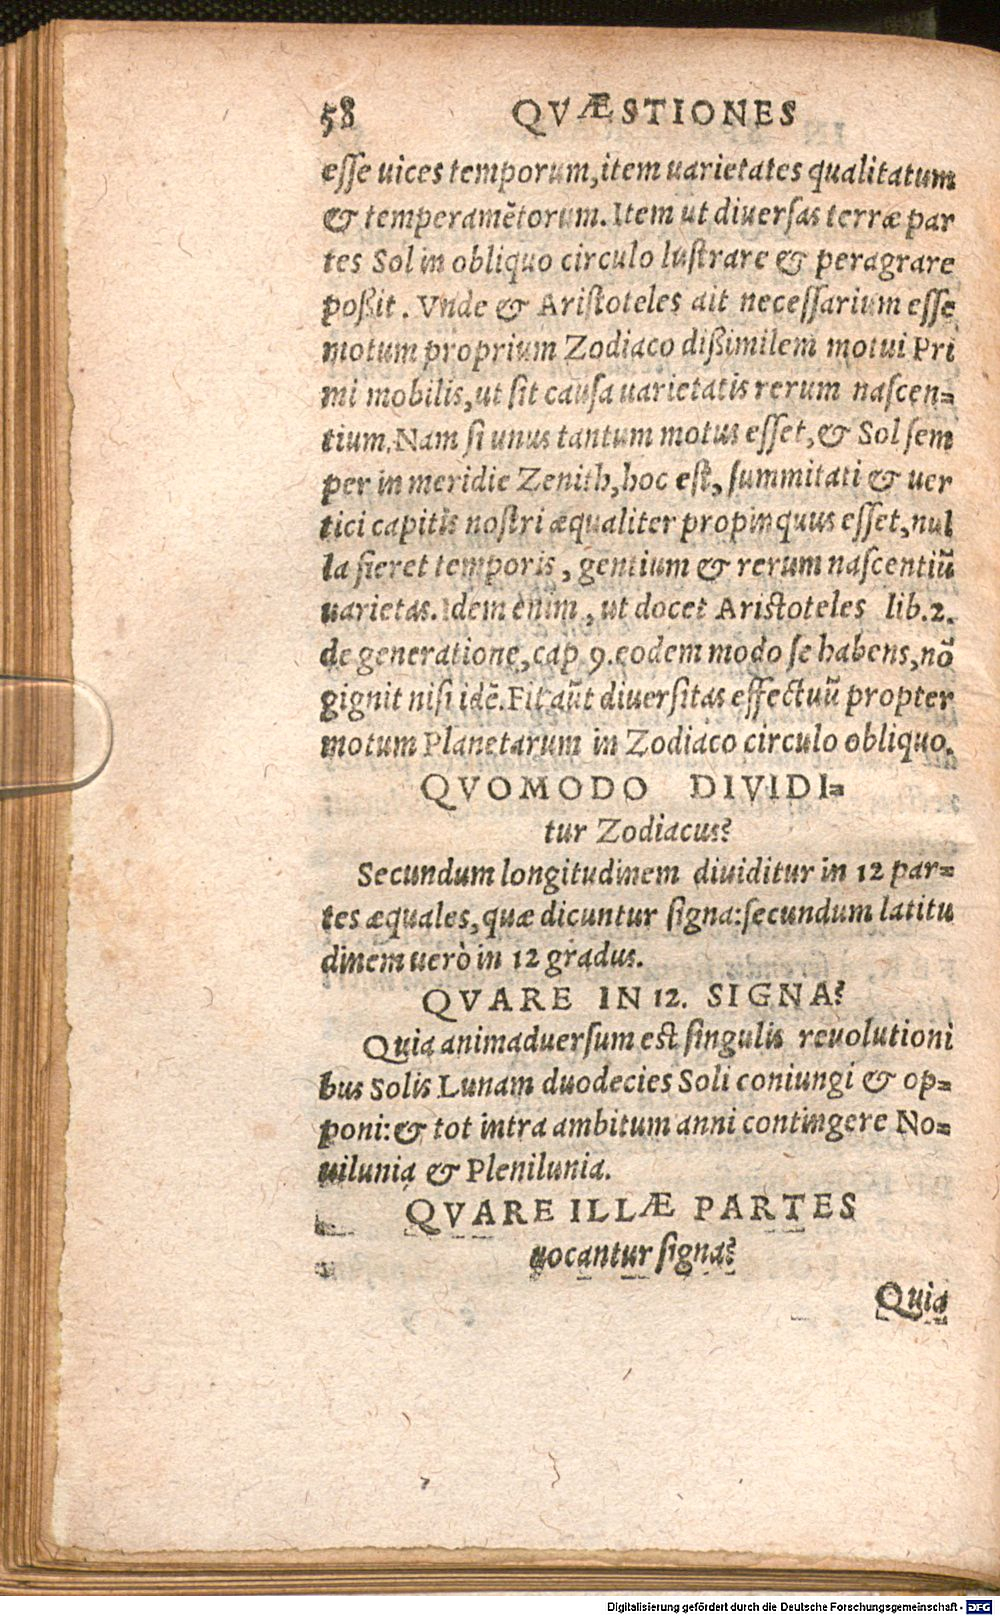 58 QVÆSTIONES
esse uices temporum, item uarietates qualitatum
& temperamẽtorum. Item ut diuersas terræ par
tes Sol in obliquo circulo lustrare & peragrare
poßit. Vnde & Aristoteles ait necessarium esse
motum proprium Zodiaco dißimilem motui Pri
mi mobilis, ut sit causa uarietatis rerum nascen=
tium. Nam si unus tantum motus esset, & Sol sem
per in meridie Zenith, hoc est, summitati & uer
tici capitis nostri æqualiter propinquus esset, nul
la fieret temporis, gentium & rerum nascentiũ
uarietas. Idem enim, ut docet Aristoteles lib. 2.
de generatione, cap 9. eodem modo se habens, nõ
gignit nisi idẽ. Fit aũt diuersitas effectuũ propter
motum Planetarum in Zodiaco circulo obliquo.
QVOMODO DIVIDI=
tur Zodiacus?
Secundum longitudinem diuiditur in 12 par=
tes æquales, quæ dicuntur signa: secundum latitu
dinem uerò in 12 gradus.
QVARE IN 12. SIGNA?
Quia animaduersum est singulis reuolutioni
bus Solis Lunam duodecies Soli coniungi & op=
poni: & tot intra ambitum anni contingere No=
uilunia & Plenilunia.
QVARE ILLÆ PARTES
uocantur signa?
Quia
Digitalisierung gefördert durch die Deutsche Forschungsgemeinschaft - DFG